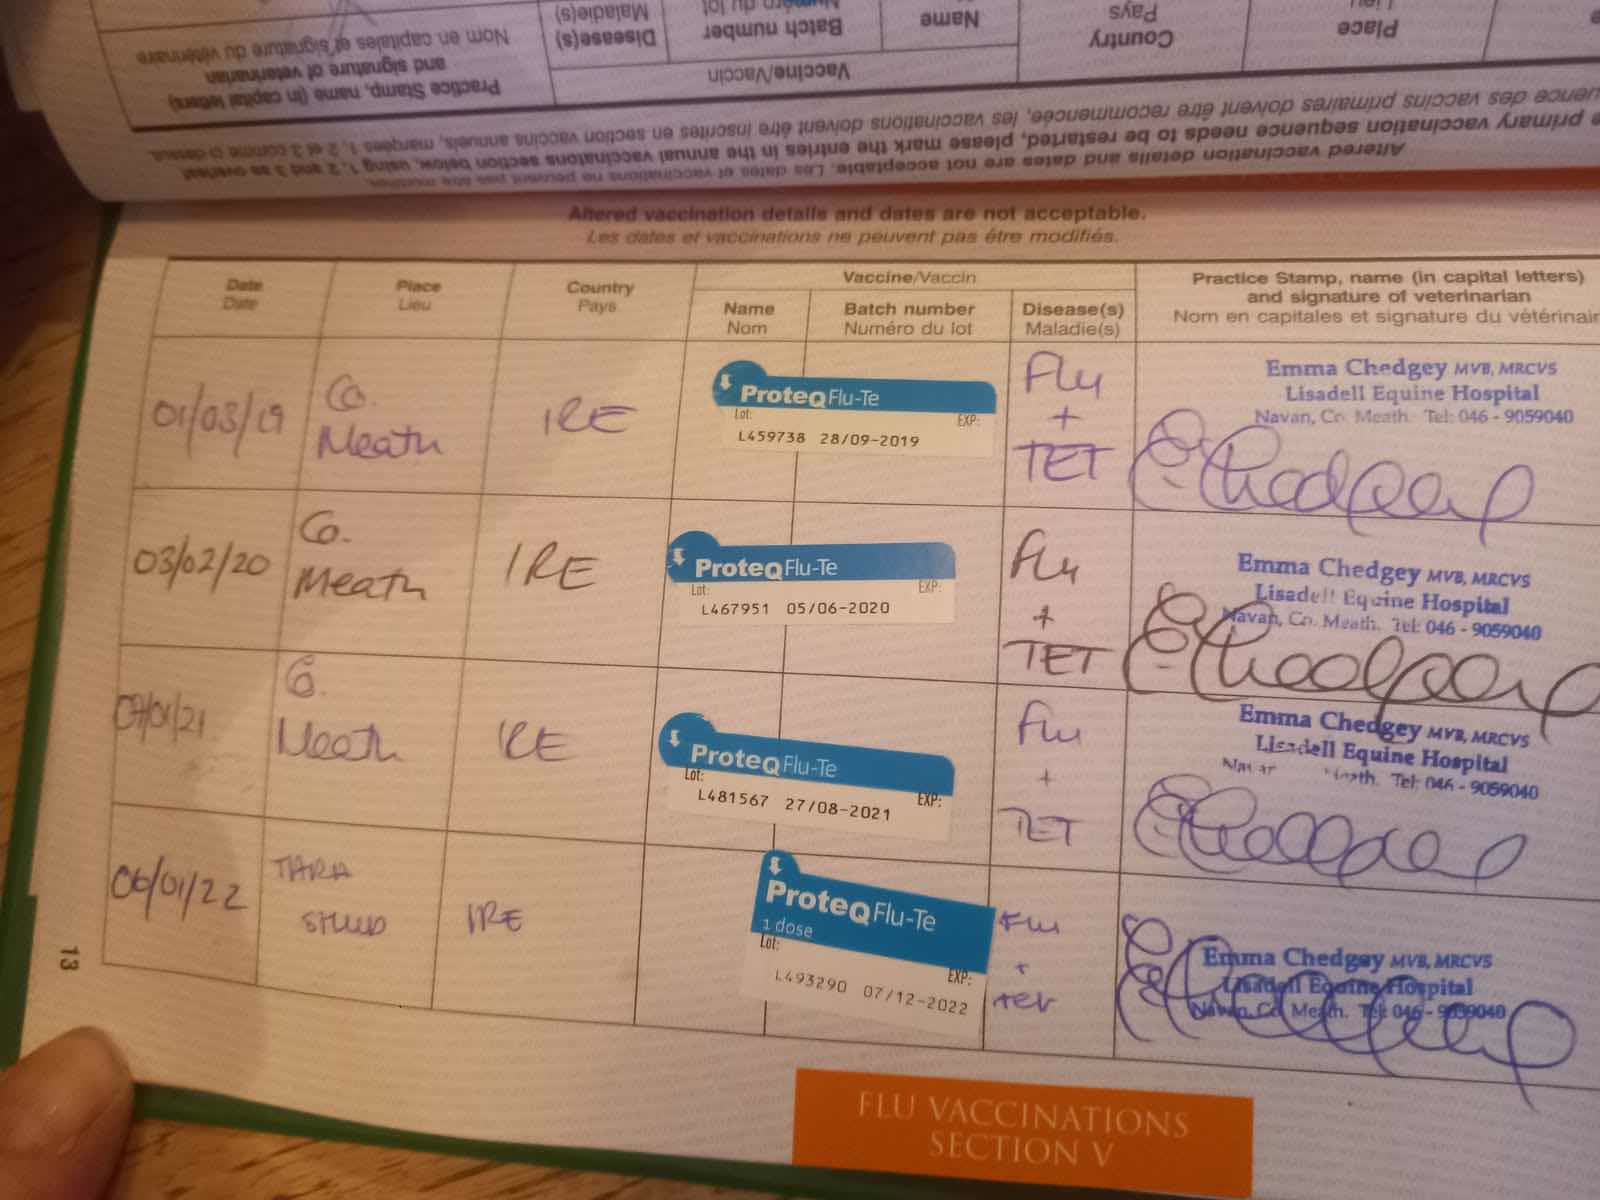 Nom en capitales et signature du vétérinaire
and signature of veterinarian
Practice Stamp, name (in capital letters)
Maladie(s)
Disease(s)
Numéro du lot
Batch number
Name
Vaccine/Vaccin
Pays
Country
Lieu
Place
uence des vaccins primaires doivent être recommencée, les vaccinations doivent être inscrites en section vaccins annuels, marquées 1, 2 et 3 comme ci-dessus.
e primary vaccination sequence needs to be restarted, please mark the entries in the annual vaccinations section below, using 1, 2 and 3 as overleaf.
Altered vaccination details and dates are not acceptable. Les dates et vaccinations ne peuvent pas être modifiés.
Altered vaccination details and dates are not acceptable.
Les dates et vaccinations ne peuvent pas être modifiés.
Date
Date
Place
Lieu
Country
Pays
Vaccine/Vaccin
Name
Nom
Batch number
Numéro du lot
Disease(s)
Maladie(s)
Practice Stamp, name (in capital letters)
and signature of veterinarian
Nom en capitales et signature du vétérinair
01/03/19
Co.
Meath
IRE
ProteqFlu-Te
Lot: EXP:
L459738 28/09-2019
Flu
+
TET
Emma Chedgey MVB, MRCVS
Lisadell Equine Hospital
Navan, Co. Meath. Tel: 046 - 9059040
03/02/20
Co.
Meath
IRE
ProteqFlu-Te
Lot: EXP:
L467951 05/06-2020
Flu
+
TET
Emma Chedgey MVB, MRCVS
Lisadell Equine Hospital
Navan, Co. Meath. Tel: 046 - 9059040
07/01/21
Co.
Meath
IRE
ProteqFlu-Te
Lot: EXP:
L481567 27/08-2021
Flu
+
TET
Emma Chedgey MVB, MRCVS
Lisadell Equine Hospital
Meath. Tel: 046 - 9059040
06/01/22
TARA
STUD
IRE
ProteqFlu-Te
1 dose
Lot: EXP:
L493290 07/12-2022
Flu
+
TET
Emma Chedgey MVB, MRCVS
Lisadell Equine Hospital
Navan, Co. Meath. Tel: 046 - 9059040
13
FLU VACCINATIONS
SECTION V